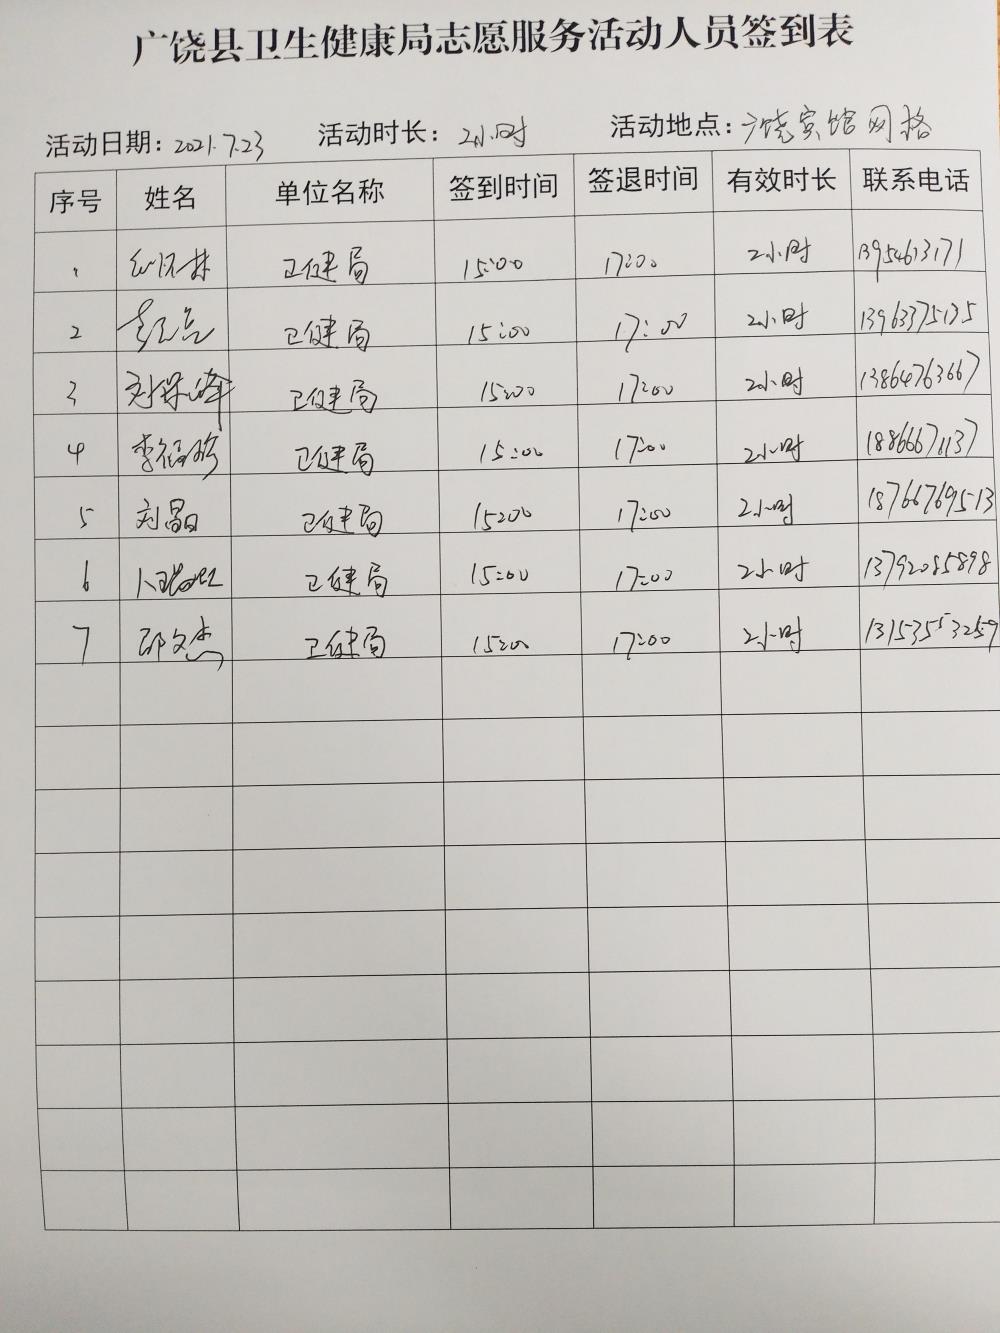 广饶县卫生健康局志愿服务活动人员签到表
活动日期：2021.7.23 活动时长：2小时 活动地点：广饶宾馆网格
序号 姓名 单位名称 签到时间 签退时间 有效时长 联系电话
1 卫健局 15:00 17:00 2小时 13954613171
2 卫健局 15:00 17:00 2小时 13963375135
3 刘保峰 卫健局 15:00 17:00 2小时 13864763667
4 李福珍 卫健局 15:00 17:00 2小时 18866671137
5 刘晶 卫健局 15:00 17:00 2小时 18766769513
6 卫健局 15:00 17:00 2小时 13792085898
7 邵文杰 卫健局 15:00 17:00 2小时 13153553259